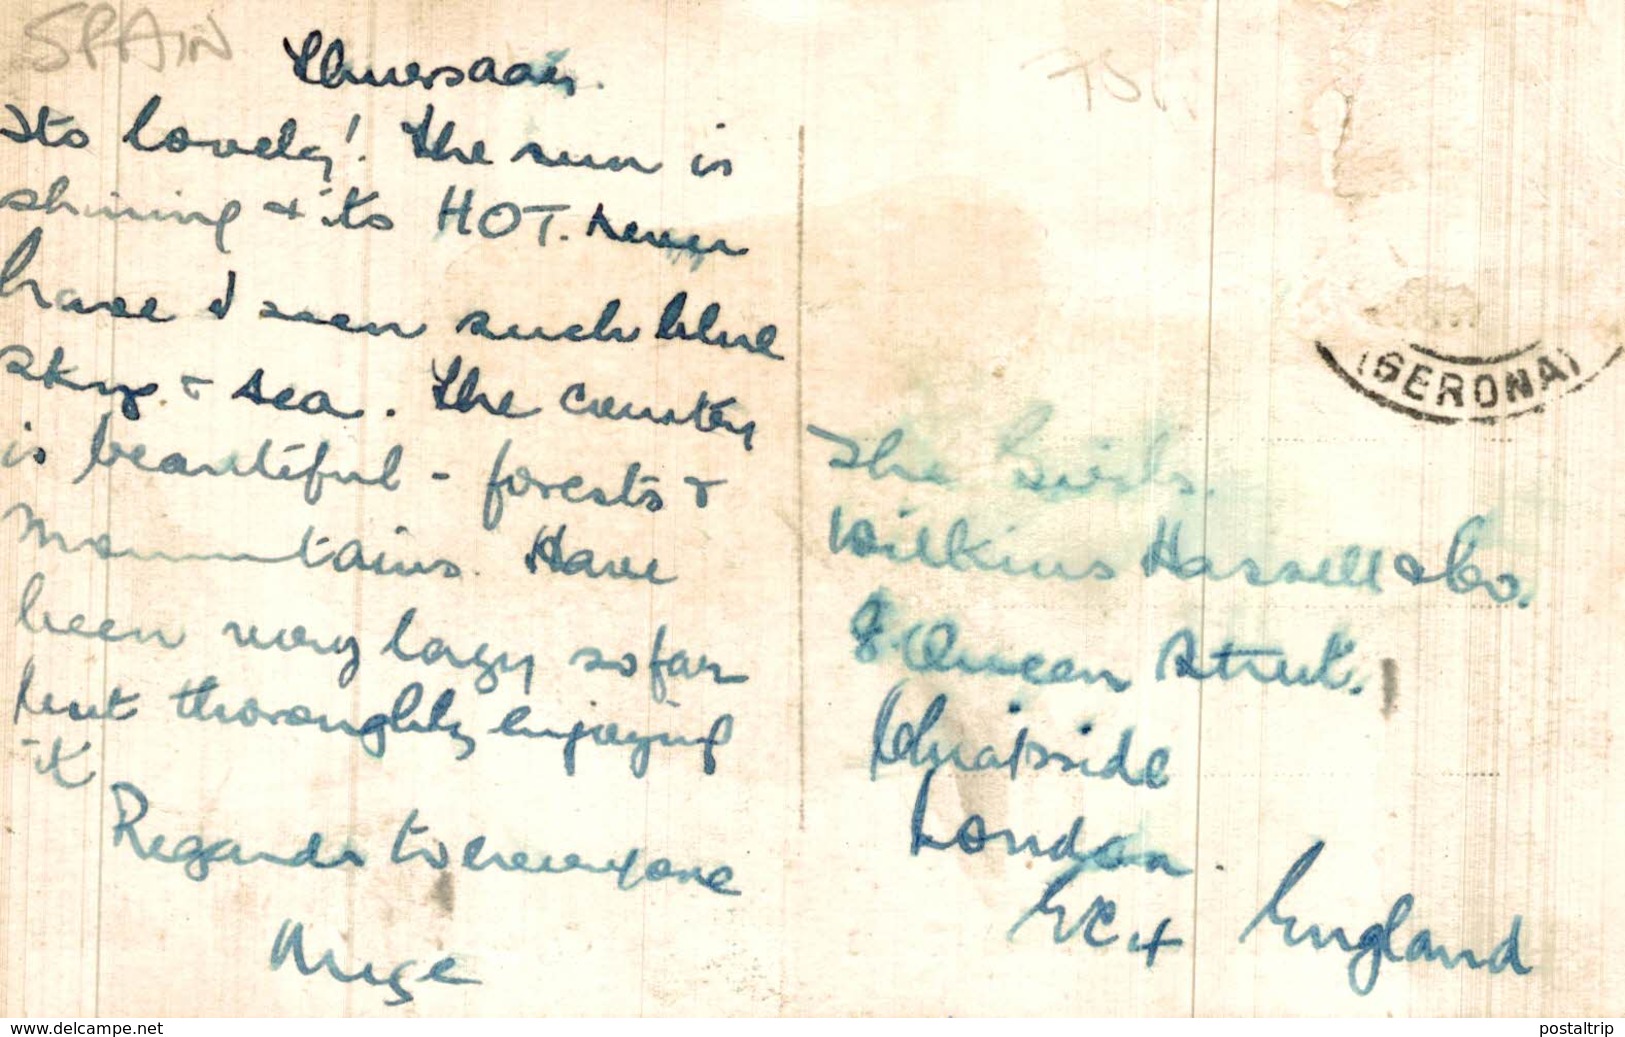 SPAIN
Thursday.
Its lovely! The sun is
shining + its HOT. Never
have I seen such blue
sky + sea. The country
is beautiful - forests +
mountains. Have
been very lazy so far
but thoroughly enjoying
it
Regards to everyone
(GERONA)
The Girls.
Wilkins Hassell & Co.
8 Queen Street.
London
EC4 England
www.delcampe.net
postaltrip